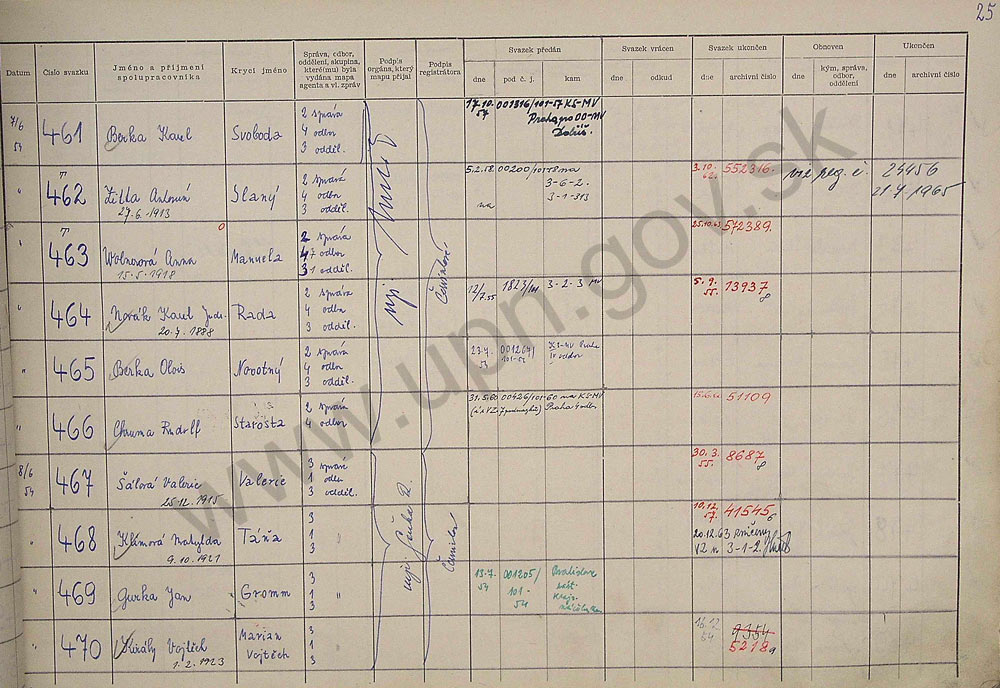 25
Datum
Číslo svazku
Jméno a příjmení
spolupracovníka
Krycí jméno
Správa, odbor,
oddělení, skupina,
které(mu) byla
vydána mapa
agenta a vl. zpráv
Podpis
orgána, který
mapu přijal
Podpis
registrátora
Svazek předán
dne
pod č. j.
kam
Svazek vrácen
dne
odkud
Svazek ukončen
dne
archivní číslo
Obnoven
dne
kým, správa,
odbor,
oddělení
Ukončen
dne
archivní číslo
7/6
54
461
Berka Karel
Svoboda
2 správa
4 odbor
3 odděl.
17.10.
57
001316/101-57 KS-MV
Praha pro OO-MV
462
Zitka Antonín
27.6.1913
Slaný
2 správa
4 odbor
3 odděl.
5.2.58
00200/101-58 na
3-6-2.
3-1-313
na
3.10.
62.
552316.
viz reg. č.
24456
21.7.1965
463
Wolnorová Anna
15.5.1918
Manuela
2 správa
7 odbor
1 odděl.
25.10.63
572389.
464
Novák Karel
20.7.1888
Rada
2 správa
4 odbor
3 odděl.
12/7.55
1823/101
3-2-3 MV
5.9.
55.
13937
8
465
Berka Alois
Novotný
2 správa
4 odbor
3 odděl.
23.7.
001267/
466
Chruma Rudolf
Starosta
2 správa
4 odbor
31.5.60
00426/101-60 na KS-MV
Praha 4 odbor
51109
8/6
54
467
Šálová Valerie
25.12.1915
Valerie
3 správa
1 odbor
3 odděl.
30.3.
55.
8687
8
468
Klímová Matylda
9.10.1921
Táňa
3
1
3
10.12.
57.
41545
6
20.12.63 zničeny
VZ n 3-1-2.
469
Gurka Jan
Gromm
3
1
3
13.7.
54
001205/
101-
54
Bratislava
470
Király Vojtěch
1.2.1923
Marian
Vojtěch
3
1
3
16.12
54
9354
5218
9
www.upn.gov.sk